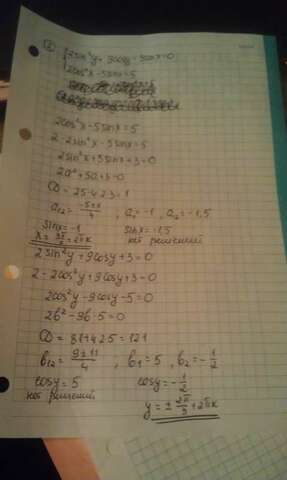 2sin²y + 9cosy - 3sinx = 0
2cos²x - 5sinx = 5
2cos²x - 5sinx = 5
2 - 2sin²x - 5sinx = 5
2sin²x + 5sinx + 3 = 0
2a² + 5a + 3 = 0
D = 25 - 4·2·3 = 1
a₁₂ = (-5±1)/4 , a₁ = -1 , a₂ = -1,5
sinx = -1 sinx = -1,5
x = 3π/2 + 2πk нет решений
2sin²y + 9cosy + 3 = 0
2 - 2cos²y + 9cosy + 3 = 0
2cos²y - 9cosy - 5 = 0
2b² - 9b - 5 = 0
D = 81 + 4·2·5 = 121
b₁₂ = (9±11)/4 , b₁ = 5 , b₂ = -1/2
cosy = 5 cosy = -1/2
нет решений
y = ± 2π/3 + 2πk